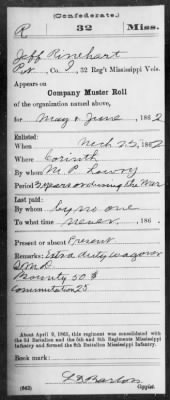 (Confederate.)
R 32 Miss.
Jeff Rinehart
Pvt, Co. I, 32 Reg't Mississippi Vols.
Appears on
Company Muster Roll
of the organization named above,
for May & June, 1862
Enlisted:
When Mch 22, 1862
Where Corinth
By whom M. P. Lowry
Period 2 years or during the War
Last paid:
By whom by no one
To what time never, 186 .
Present or absent Present
Remarks: Extra duty wagoner
Bounty 50 $
Commutation 25
About April 9, 1865, this regiment was consolidated with
the 3d Battalion and the 5th and 8th Regiments Mississippi
Infantry and formed the 8th Battalion Mississippi Infantry.
Book mark:
(642) Copyist.